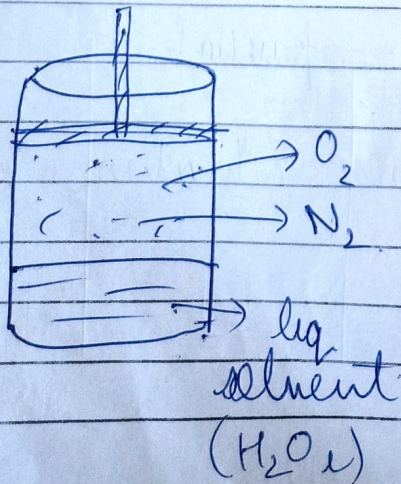 O₂
N₂
liq
solvent
(H₂O l)